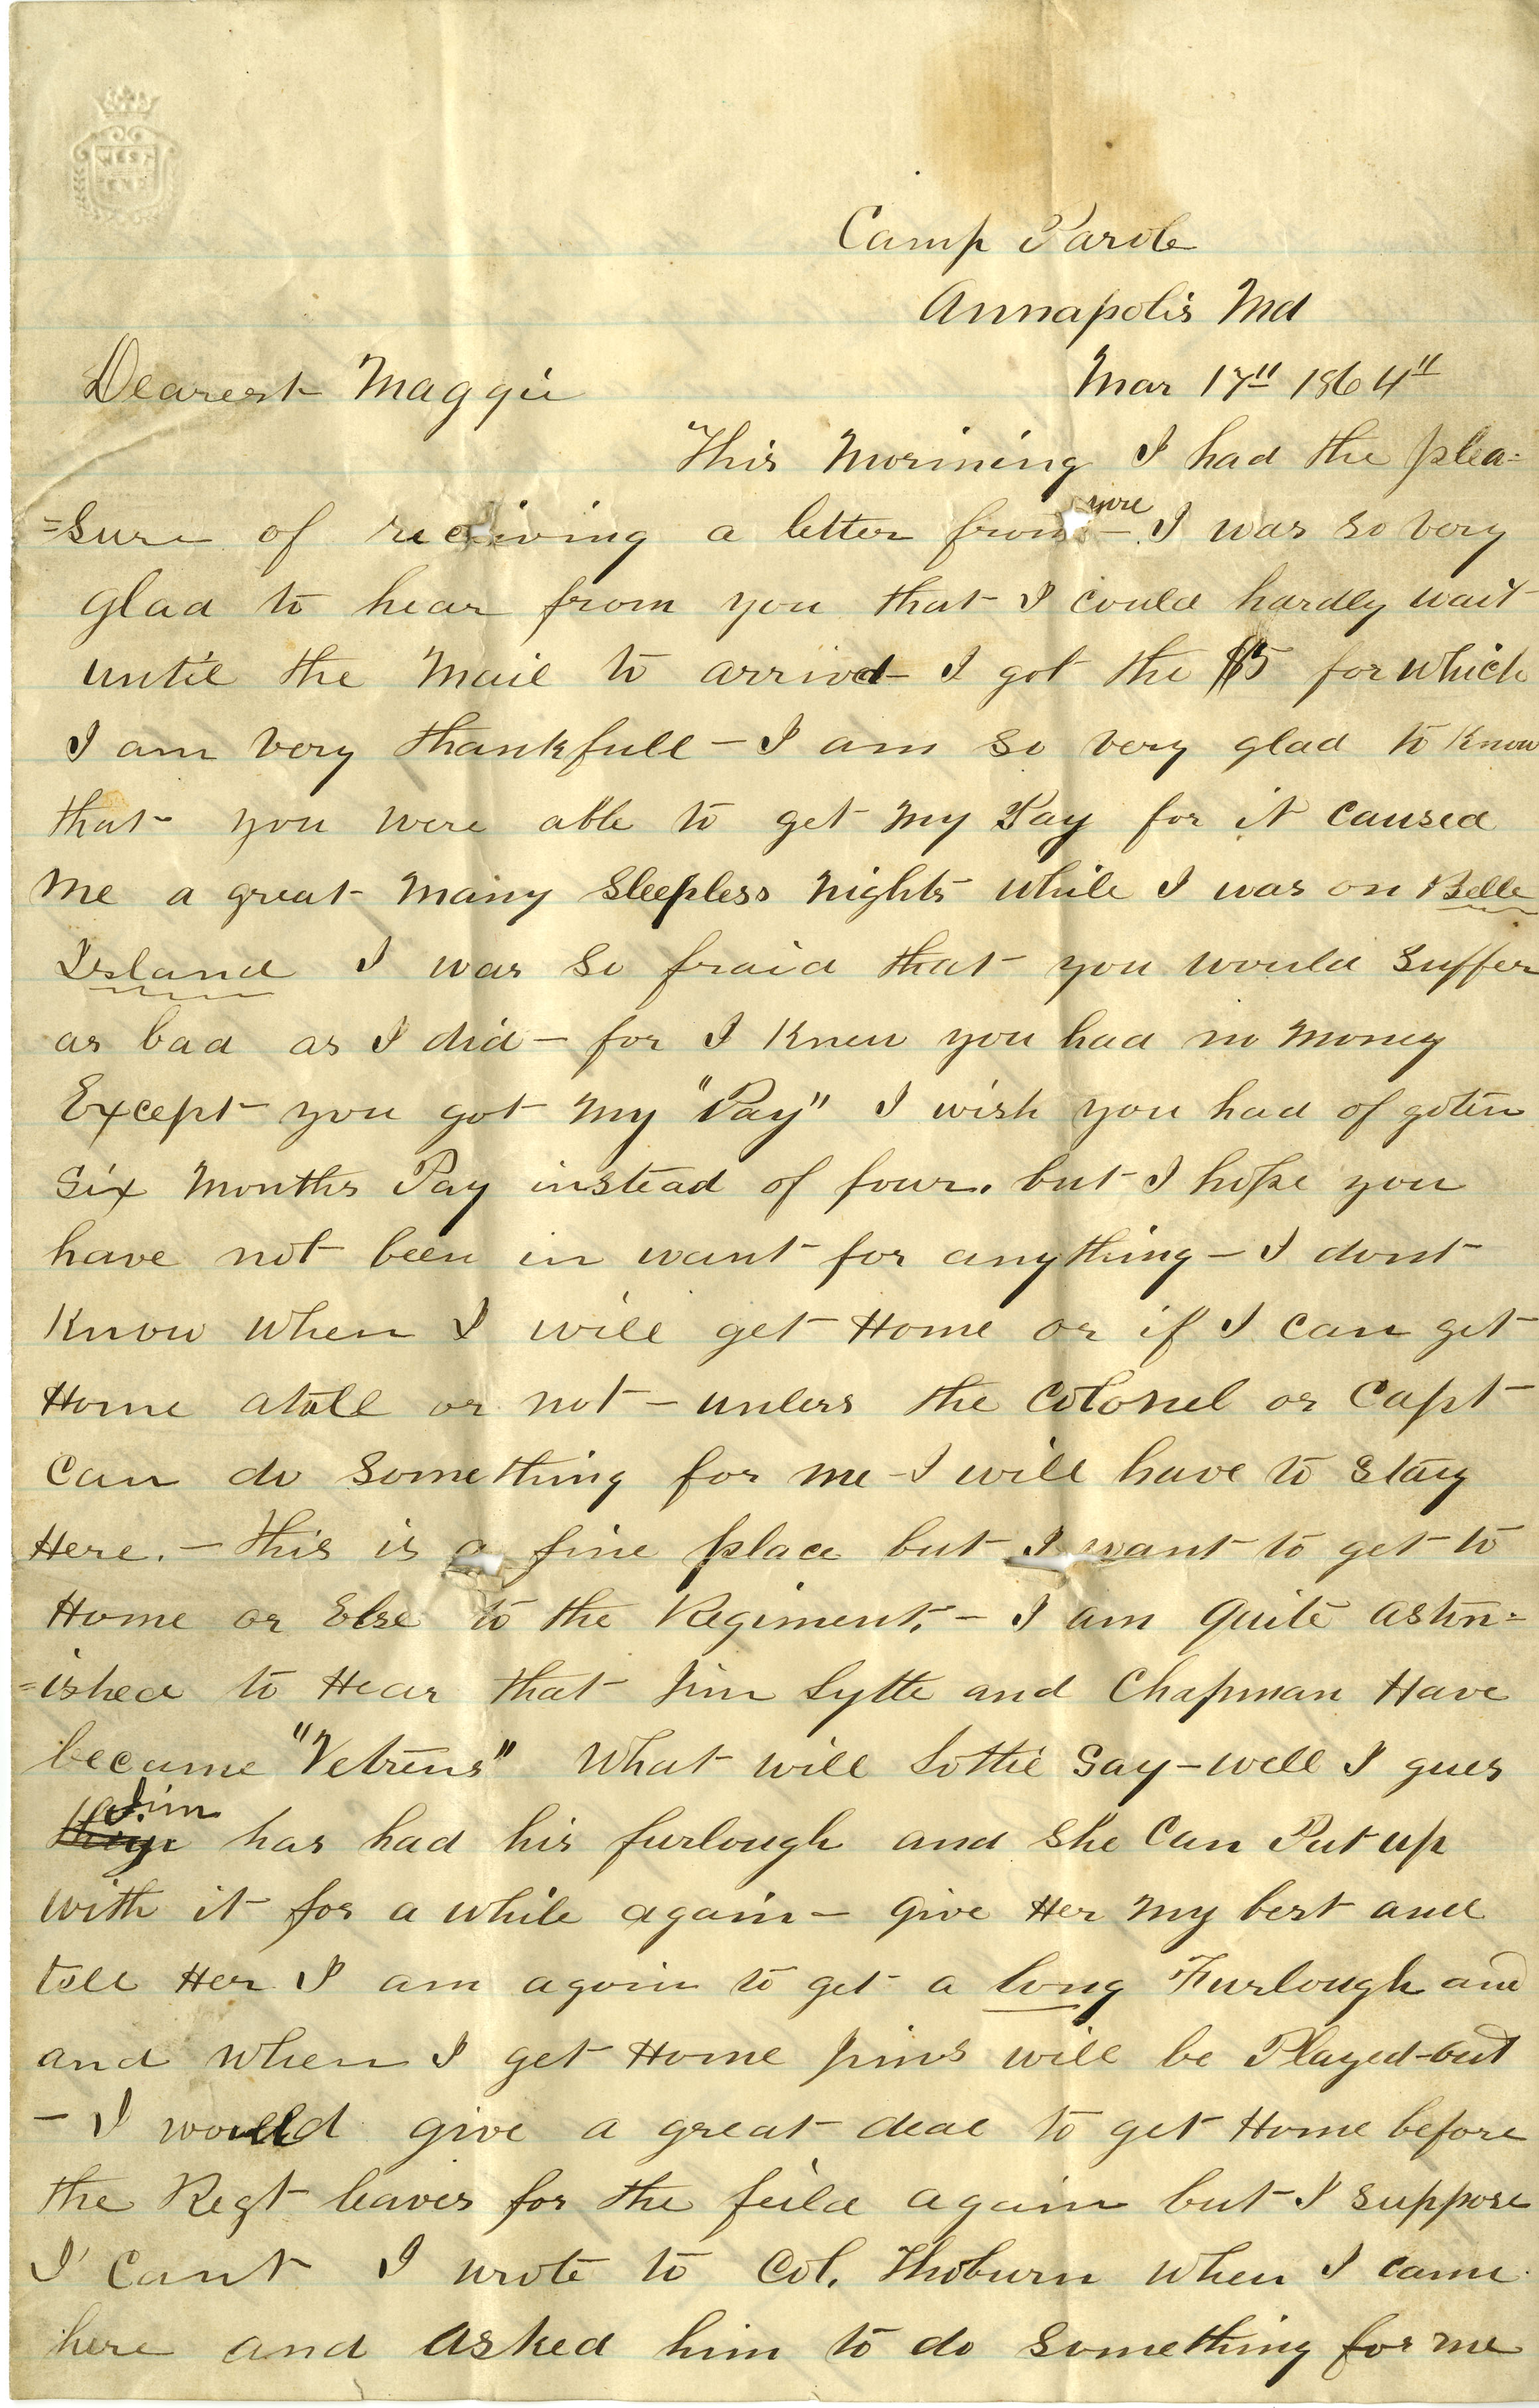 WEST
END
Camp Parole
Annapolis Md
Mar 17" 1864"
Dearest Maggie
This Morining I had the plea=
=sure of receiving a letter from you - I was so very
glad to hear from you that I could hardly wait
until the Mail to arrivd - I got the $5 for which
I am very thankfull - I am so very glad to Know
that you were able to get my Pay for it caused
me a great many Sleepless Nights while I was on Belle
Island I was so fraid that you would suffer
as bad as I did - for I Knew you had no money
Except you got my "Pay" I wish you had of goten
Six Months Pay instead of four. but I hope you
have not been in want for anything - I dont
Know when I will get Home or if I can get
Home atall or not - unless the Colonel or Capt
can do something for me - I will have to stay
Here. - this is a fine place but I want to get to
Home or Else to the Regiment. - I am quite aston=
=ished to Hear that Jim Lytle and Chapman Have
became "Vetrens" What will Lottie Say - well I gues
Jim has had his furlough and she can Put up
with it for a while again - give Her my best and
tell Her I am agoin to get a long Furlough and
and when I get Home Jims will be Played-out
- I would give a great deal to get Home before
the Regt leaves for the feild again but I suppose
I cant I wrote to Col. Thoburn when I came
here and asked him to do something for me